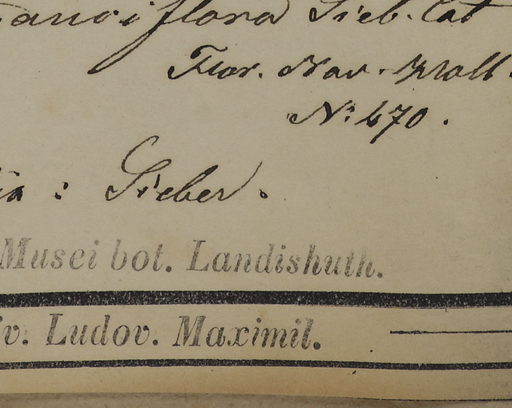 pauciflora Sieb. Cat
Flor. Nov. Holl.
No. 470.
ia : Sieber.
Musei bot. Landishuth.
iv. Ludov. Maximil.